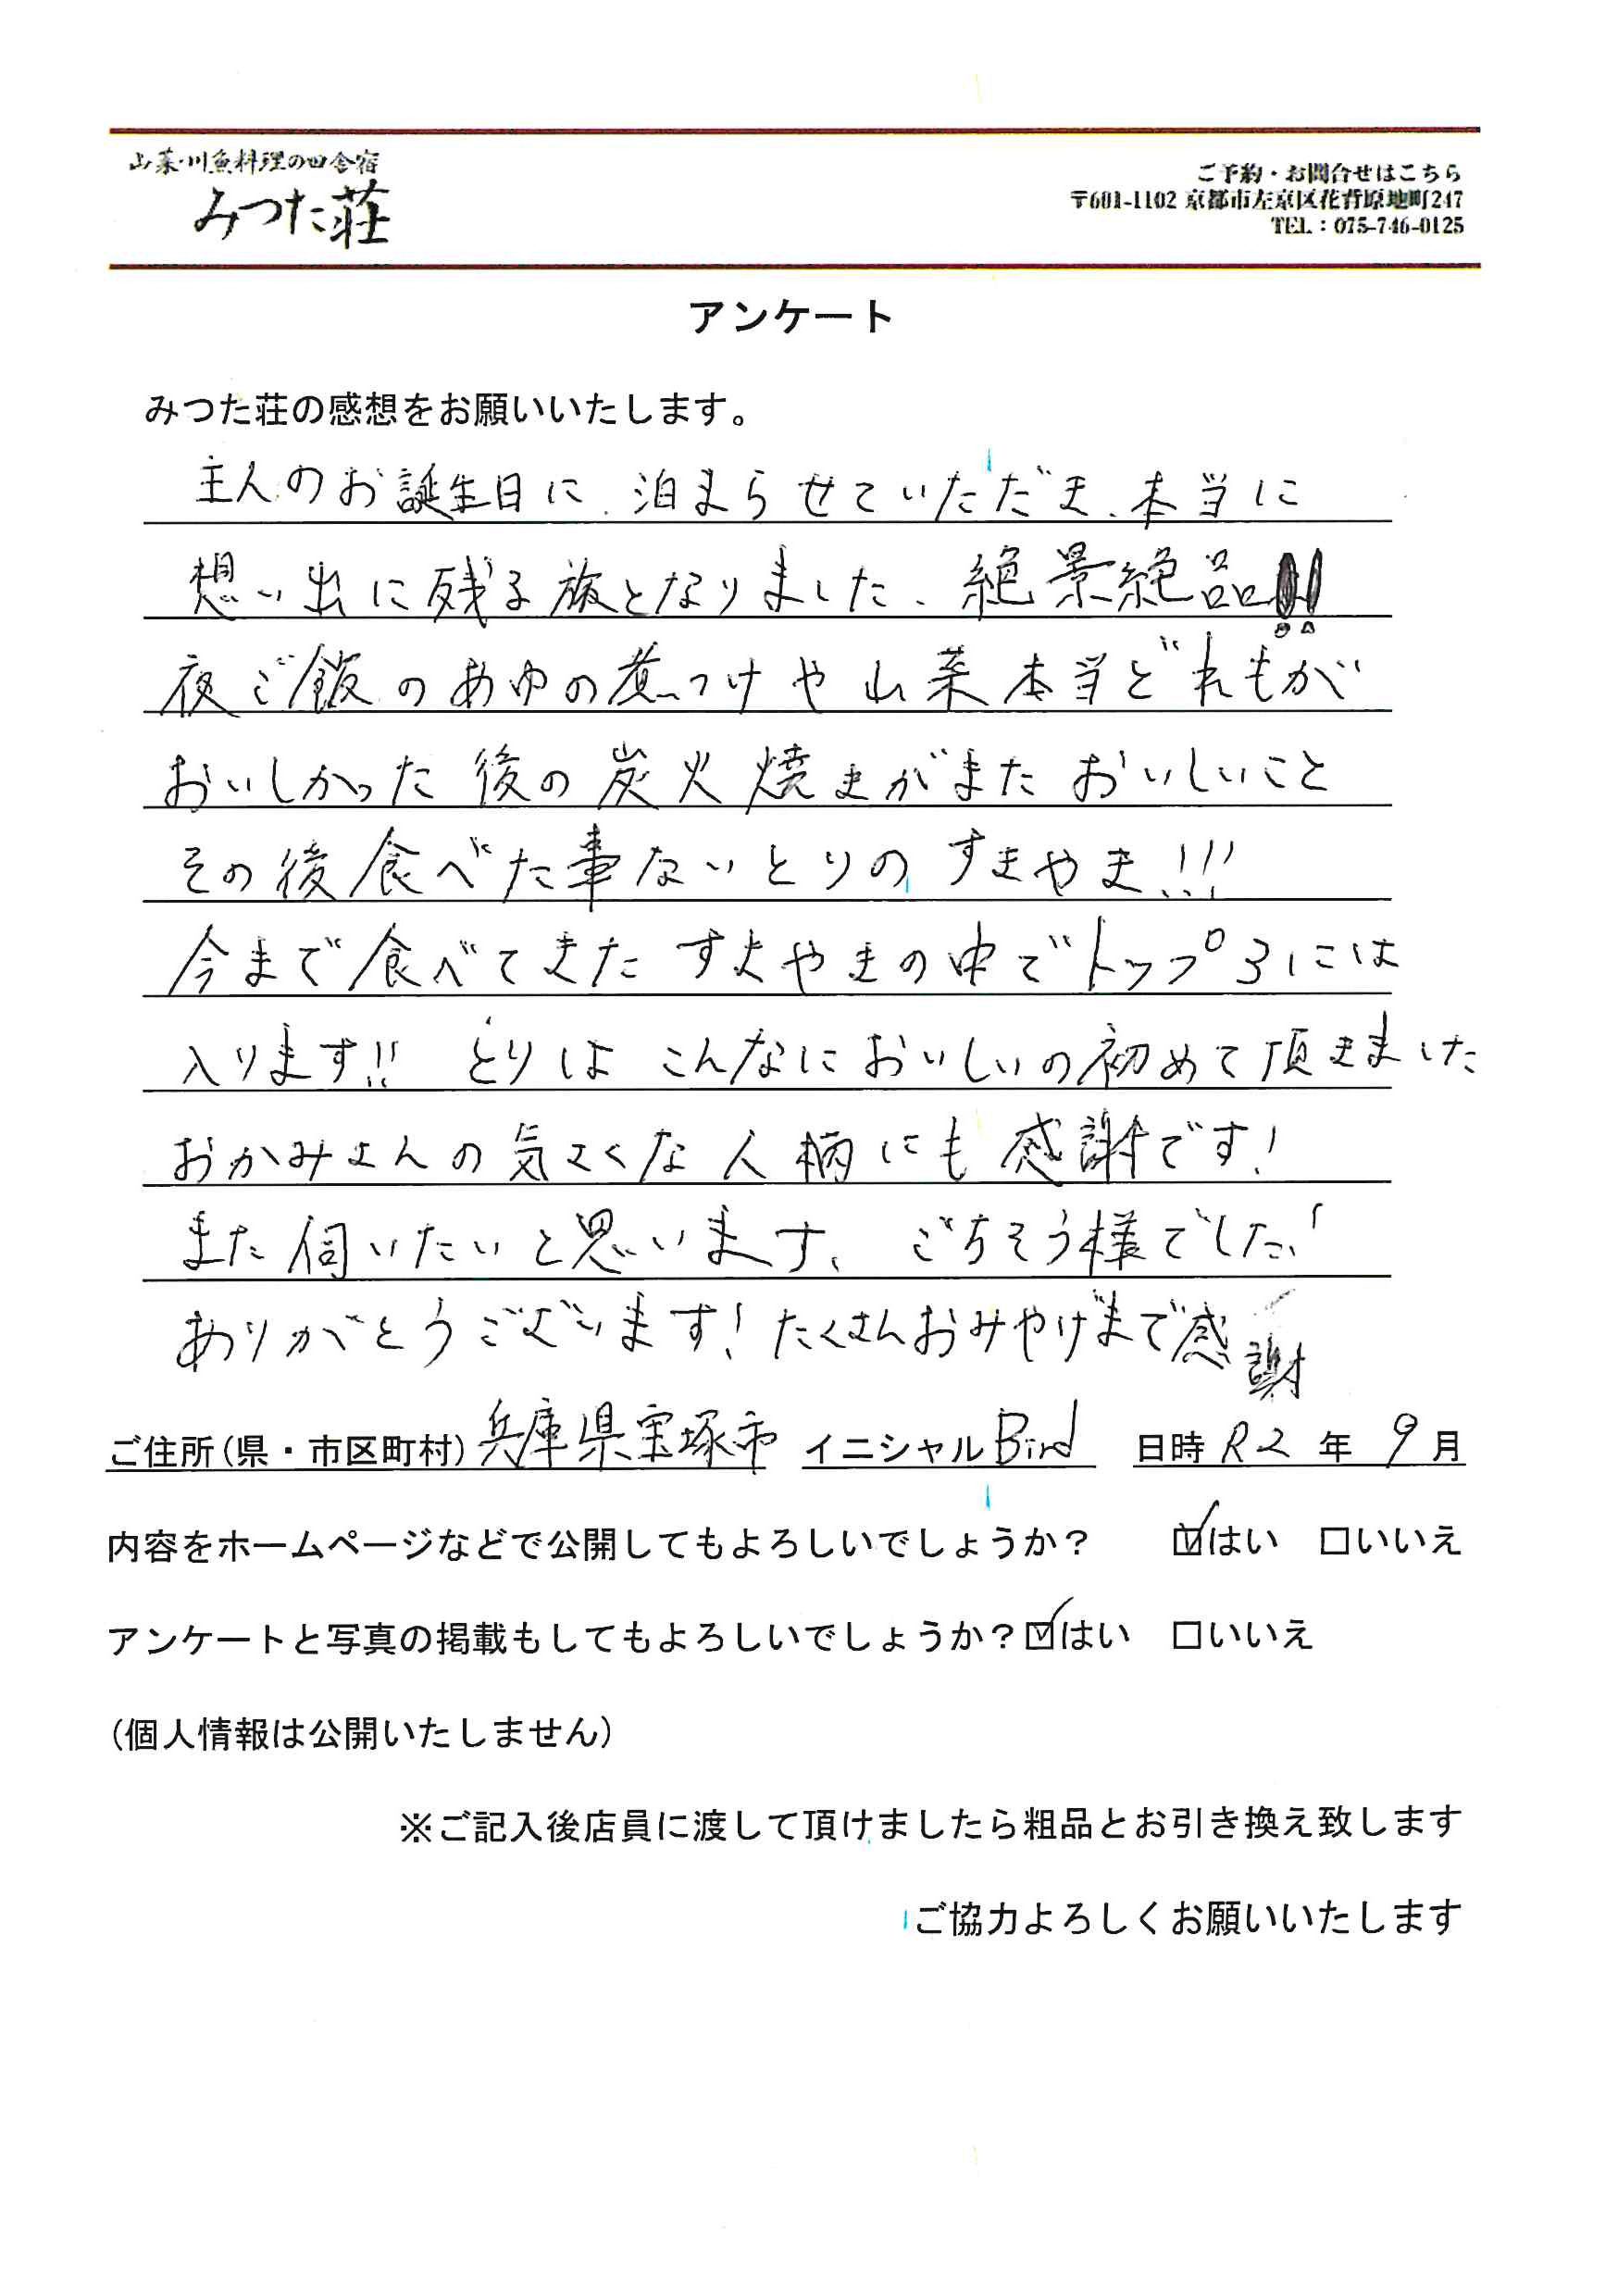 山菜・川魚料理の田舎宿
みつた荘
ご予約・お問合せはこちら
〒601-1102 京都市左京区花背原地町247
TEL：075-746-0125
アンケート
みつた荘の感想をお願いいたします。
主人のお誕生日に、泊まらせていただき、本当に
想い出に残る旅となりました、絶景絶品!!
夜ご飯のあゆの煮つけや山菜本当どれもが
おいしかった後の炭火焼きがまたおいしいこと
その後食べた事ないとりのすきやき!!!
今まで食べてきたすきやきの中でトップ3には
入ります!! とりはこんなにおいしいの初めて頂きました
おかみさんの気さくな人柄にも感謝です!
また伺いたいと思います、ごちそう様でした!
ありがとうございます! たくさんおみやげまで感謝
ご住所(県・市区町村) 兵庫県宝塚市 イニシャル Bird 日時 R2 年 9 月
内容をホームページなどで公開してもよろしいでしょうか？ ☑はい □いいえ
アンケートと写真の掲載もしてもよろしいでしょうか？☑はい □いいえ
(個人情報は公開いたしません)
※ご記入後店員に渡して頂けましたら粗品とお引き換え致します
ご協力よろしくお願いいたします